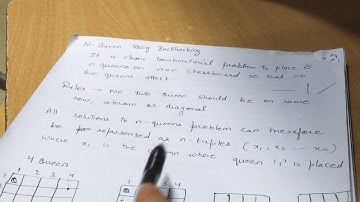 N-Queen Using Backtracking
It is classic combinatorial problem to place
n queens on n×n chessboard so that no
two queens attack
Rules → No two queen should be on same
row, column or diagonal
All solutions to n-queens problem can therefore
be represented as n-tuples (x₁, x₂ -- xₙ)
where xᵢ is the column where queen 'i' is placed
4 Queen
1 2 3 4
1 2 3 4